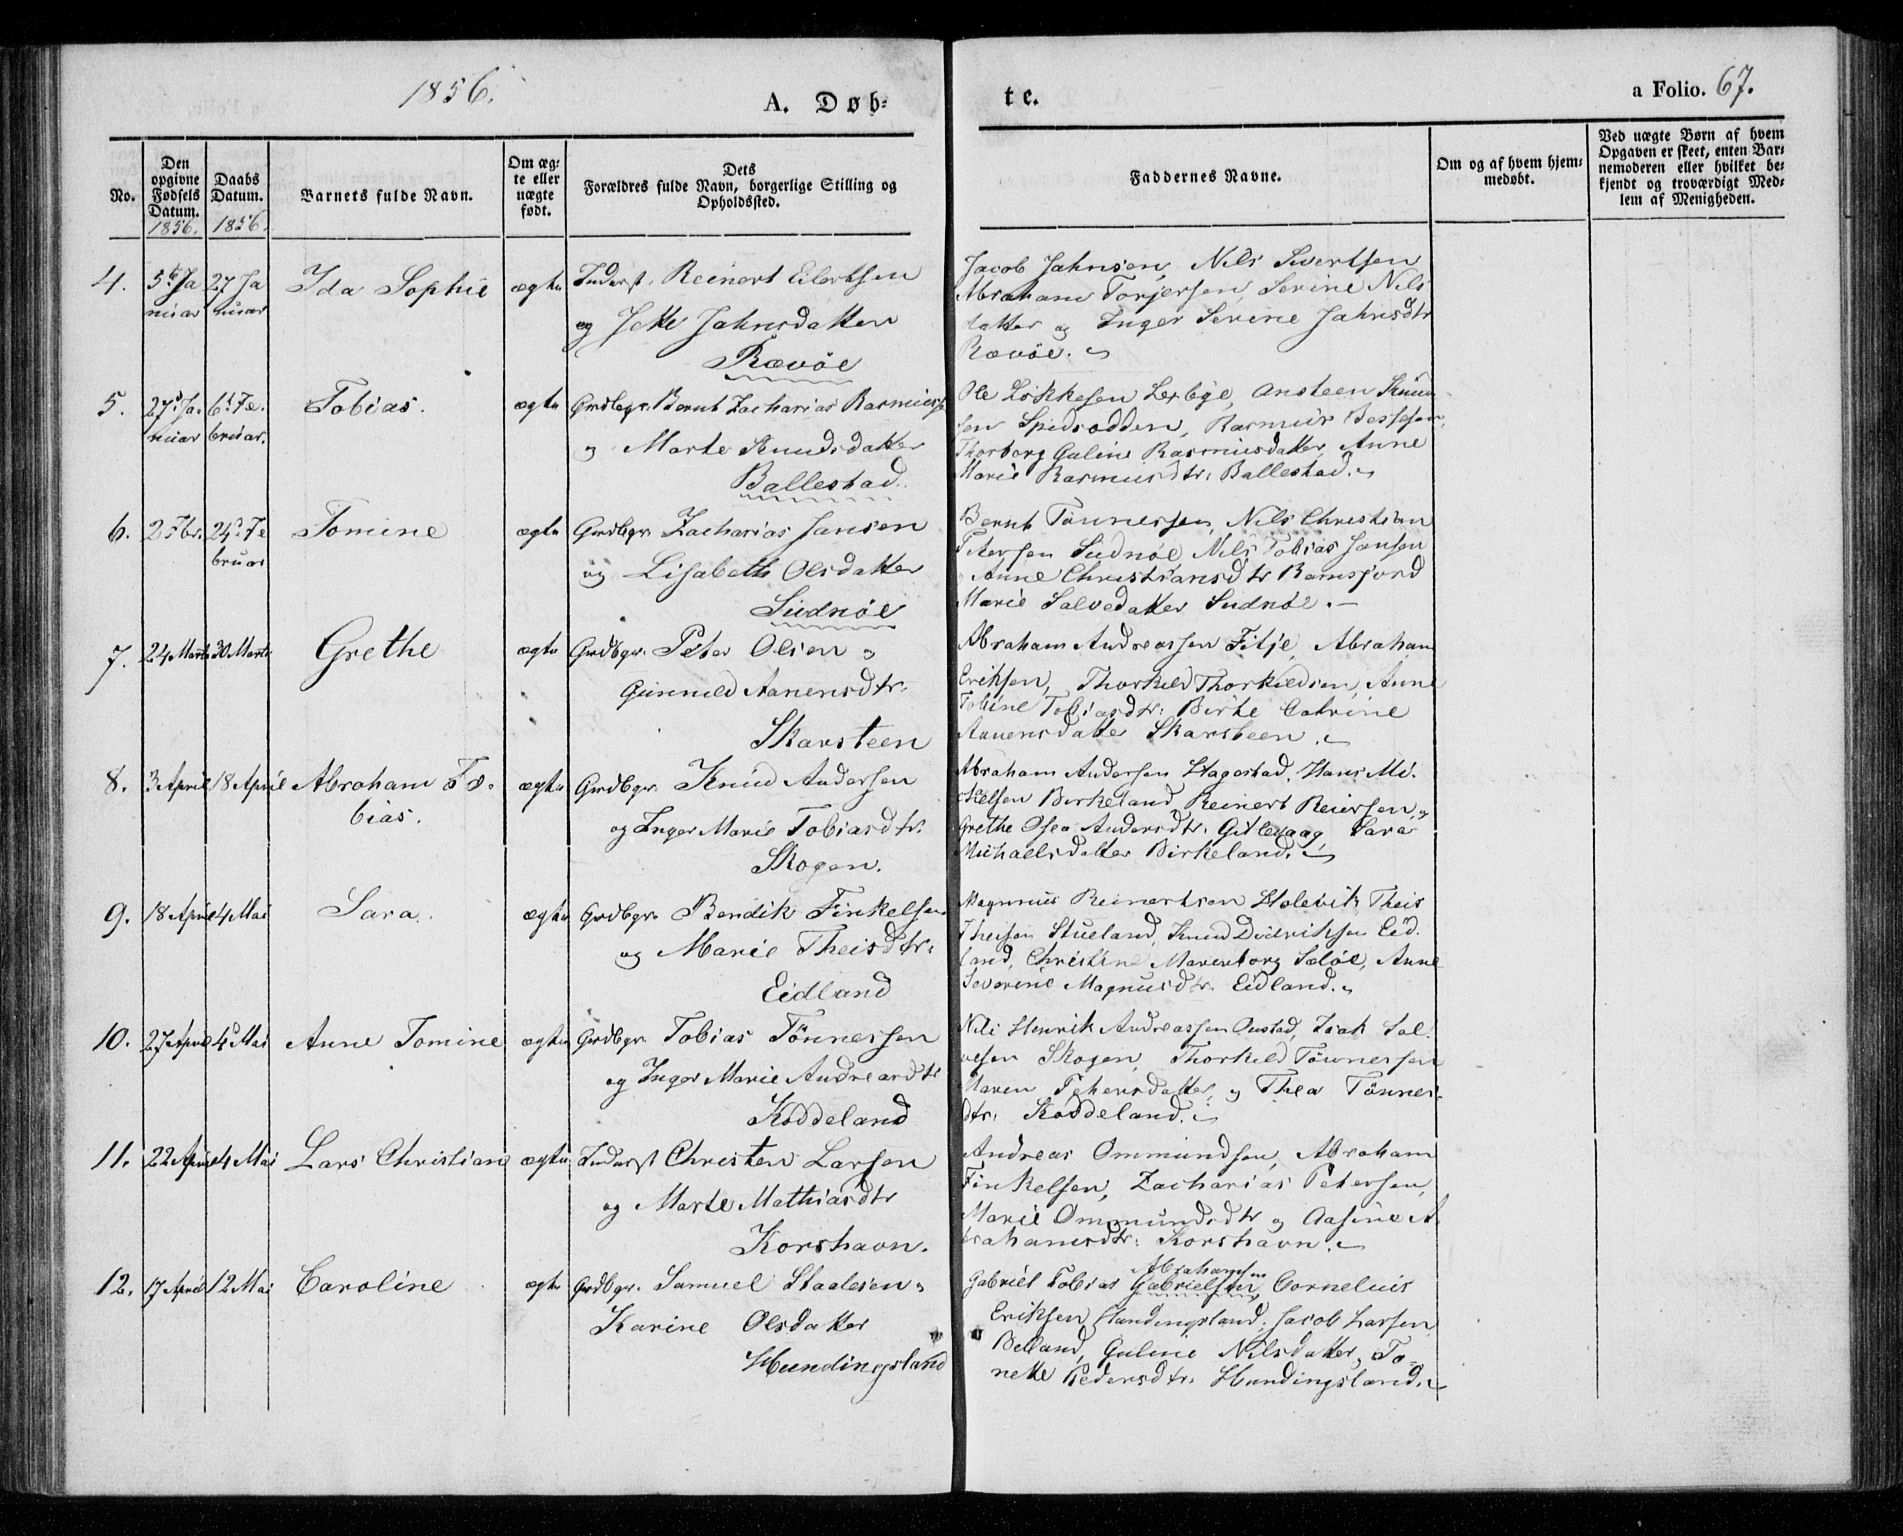 1856.
A. Døb-
te.
a Folio. 67.
No.
Den opgivne Fødsels Datum.
1856.
Daabs Datum.
1856.
Barnets fulde Navn.
Om ægte eller uægte født.
Dets Forældres fulde Navn, borgerlige Stilling og Opholdssted.
Faddernes Navne.
Om og af hvem hjemmedøbt.
Ved uægte Børn af hvem Opgaven er skeet, enten Barnemoderen eller hvilket bekjendt og troværdigt Medlem af Menigheden.
4. 5te Ja 27 Ja Ida Sophie ægte Inderst. Reinert Eilertsen
nuar nuar og Jette Jahnsdatter
Rævöe
Jacob Jahnsen, Nils Sivertsen
Abraham Torjersen, Serine Nils
datter og Inger Serine Jahnsdtr
Rævöe.
5. 27d Ja. 6t Fe. Tobias. ægte Grdbgr. Bernt Zacharias Rasmuss
nuar bruar. og Marte Knudsdatter
Ballestad.
Ole Lökkesen Lerbge, Ansteen Knud
sen Spidsodden, Rasmus Bessesen,
Thorborg Guline Rasmusdatter, Anne
Marie Rasmusdtr. Ballestad.
6. 2 Fbr. 24d Fe Tomine ægte Grdbgr. Zacharias Jansen
bruar og Lisabeth Olsdatter
Sudnöe
Bernt Tönnessen, Nils Christian
Petersen Sudnöe, Nils Tobias Jansen
Anne Christiansdtr Ramsfjord
Marie Salvedatter Sudnöe.
7. 24 Marts 30 Marts Grethe ægte Grdbgr. Peter Olsen og
Gunnild Aanensdtr.
Skarsteen
Abraham Andreassen Fitje, Abraham
Eriksen, Thorkild Thorkildsen, Anne
Tobine Tobiasdtr. Birte Catrine
Aanensdatter Skarsteen.
8. 3 April 18 April Abraham To- ægte Grdbgr. Knud Andersen
bias. og Inger Marie Tobiasdtr.
Skogen.
Abraham Andersen Hagestad, Hans Mi-
kelsen Birkeland, Reinert Reiersen, og
Grethe Osea Andersdtr. Gitlevaag, Sara
Michaelsdatter Birkeland.
9. 18 April 4 Mai Sara. ægte Grdbgr. Bendik Finkelsen
og Marie Theisdtr.
Eidland
Magnus Reinertsen Holevik, Theis
Theisen Stueland, Knud Didriksen Eid-
land, Christine Marenborg Salöe, Anne
Severine Magnusdtr. Eidland.
10. 27 April 4 Mai Anne Tomine ægte Grdbgr. Tobias Tönnessen
og Inger Marie Andreasdtr
Koddeland
Nils Henrik Andreassen Oustad, Isak Sal-
vesen Skogen, Thorkild Tönnessen
Maren Petersdatter, og Thea Tönnes-
dtr. Koddeland.
11. 22 April 4 Mai Lars Christian ægte Inderst Christen Larsen
og Marte Mathiasdtr
Korshavn.
Andreas Ommundsen, Abraham
Finkelsen, Zacharias Petersen,
Marie Ommundsdtr og Aasine A-
brahamsdtr. Korshavn.
12. 17 April 12 Mai Caroline ægte Grdbgr. Samuel Staalesen og
Karine Olsdatter
Hundingsland
Abrahamsen
Gabriel Tobias Gabrielsen, Cornelius
Eriksen Hundingsland, Jacob Larsen
Belland, Guline Nilsdatter, To-
nette Pedersdtr. Hundingsland.